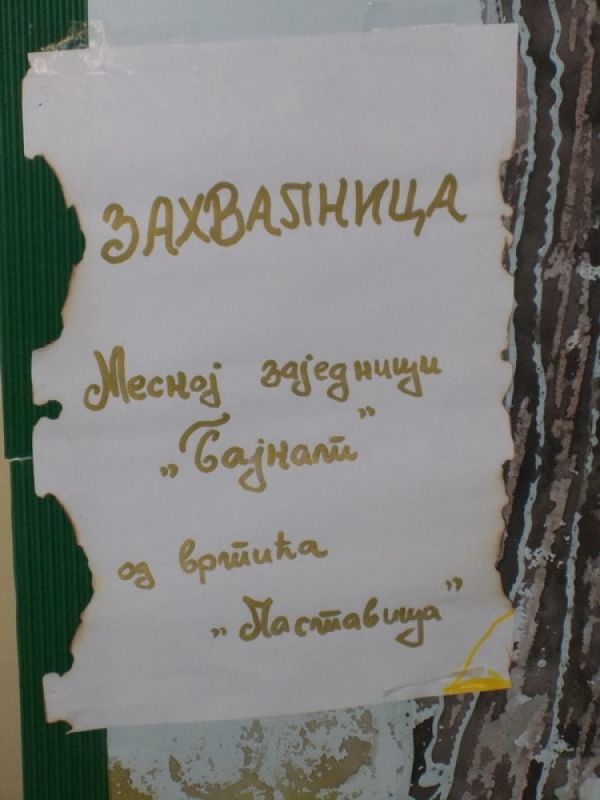 ЗАХВАЛНИЦА
Месној заједници
„Бајнат"
од вртића
„Ластавица"